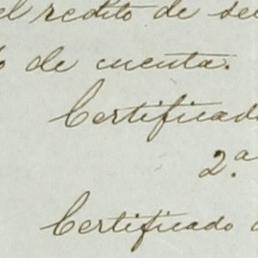 el redito de se
de cuenta.
Certificad
2.a
Certificado